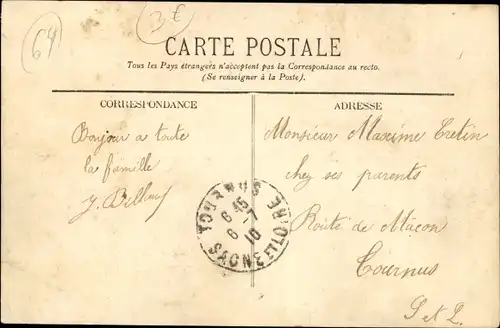 64
3€
CARTE POSTALE
Tous les Pays étrangers n'acceptent pas la Correspondance au recto.
(Se renseigner à la Poste).
CORRESPONDANCE
ADRESSE
Bonjour a toute
la famille
Monsieur Maxime Cretin
chez ses parents
Route de Macon
Tournus
S et L.
TOURNUS
6 45
6 - 7
10
SAONE ET LOIRE